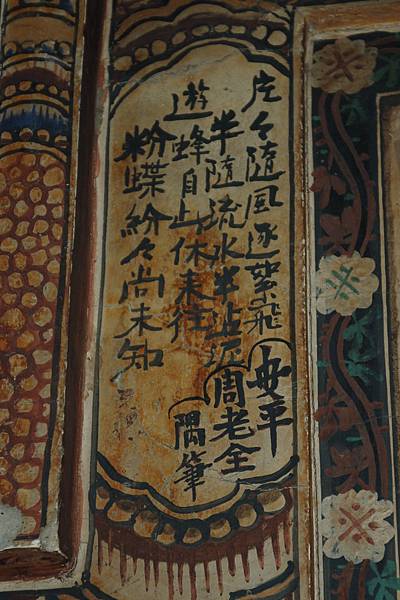 片々隨風逐絮飛
半隨流水半沾泥
遊蜂自此休來往
粉蝶紛々尚未知
安平
周老全
隅筆